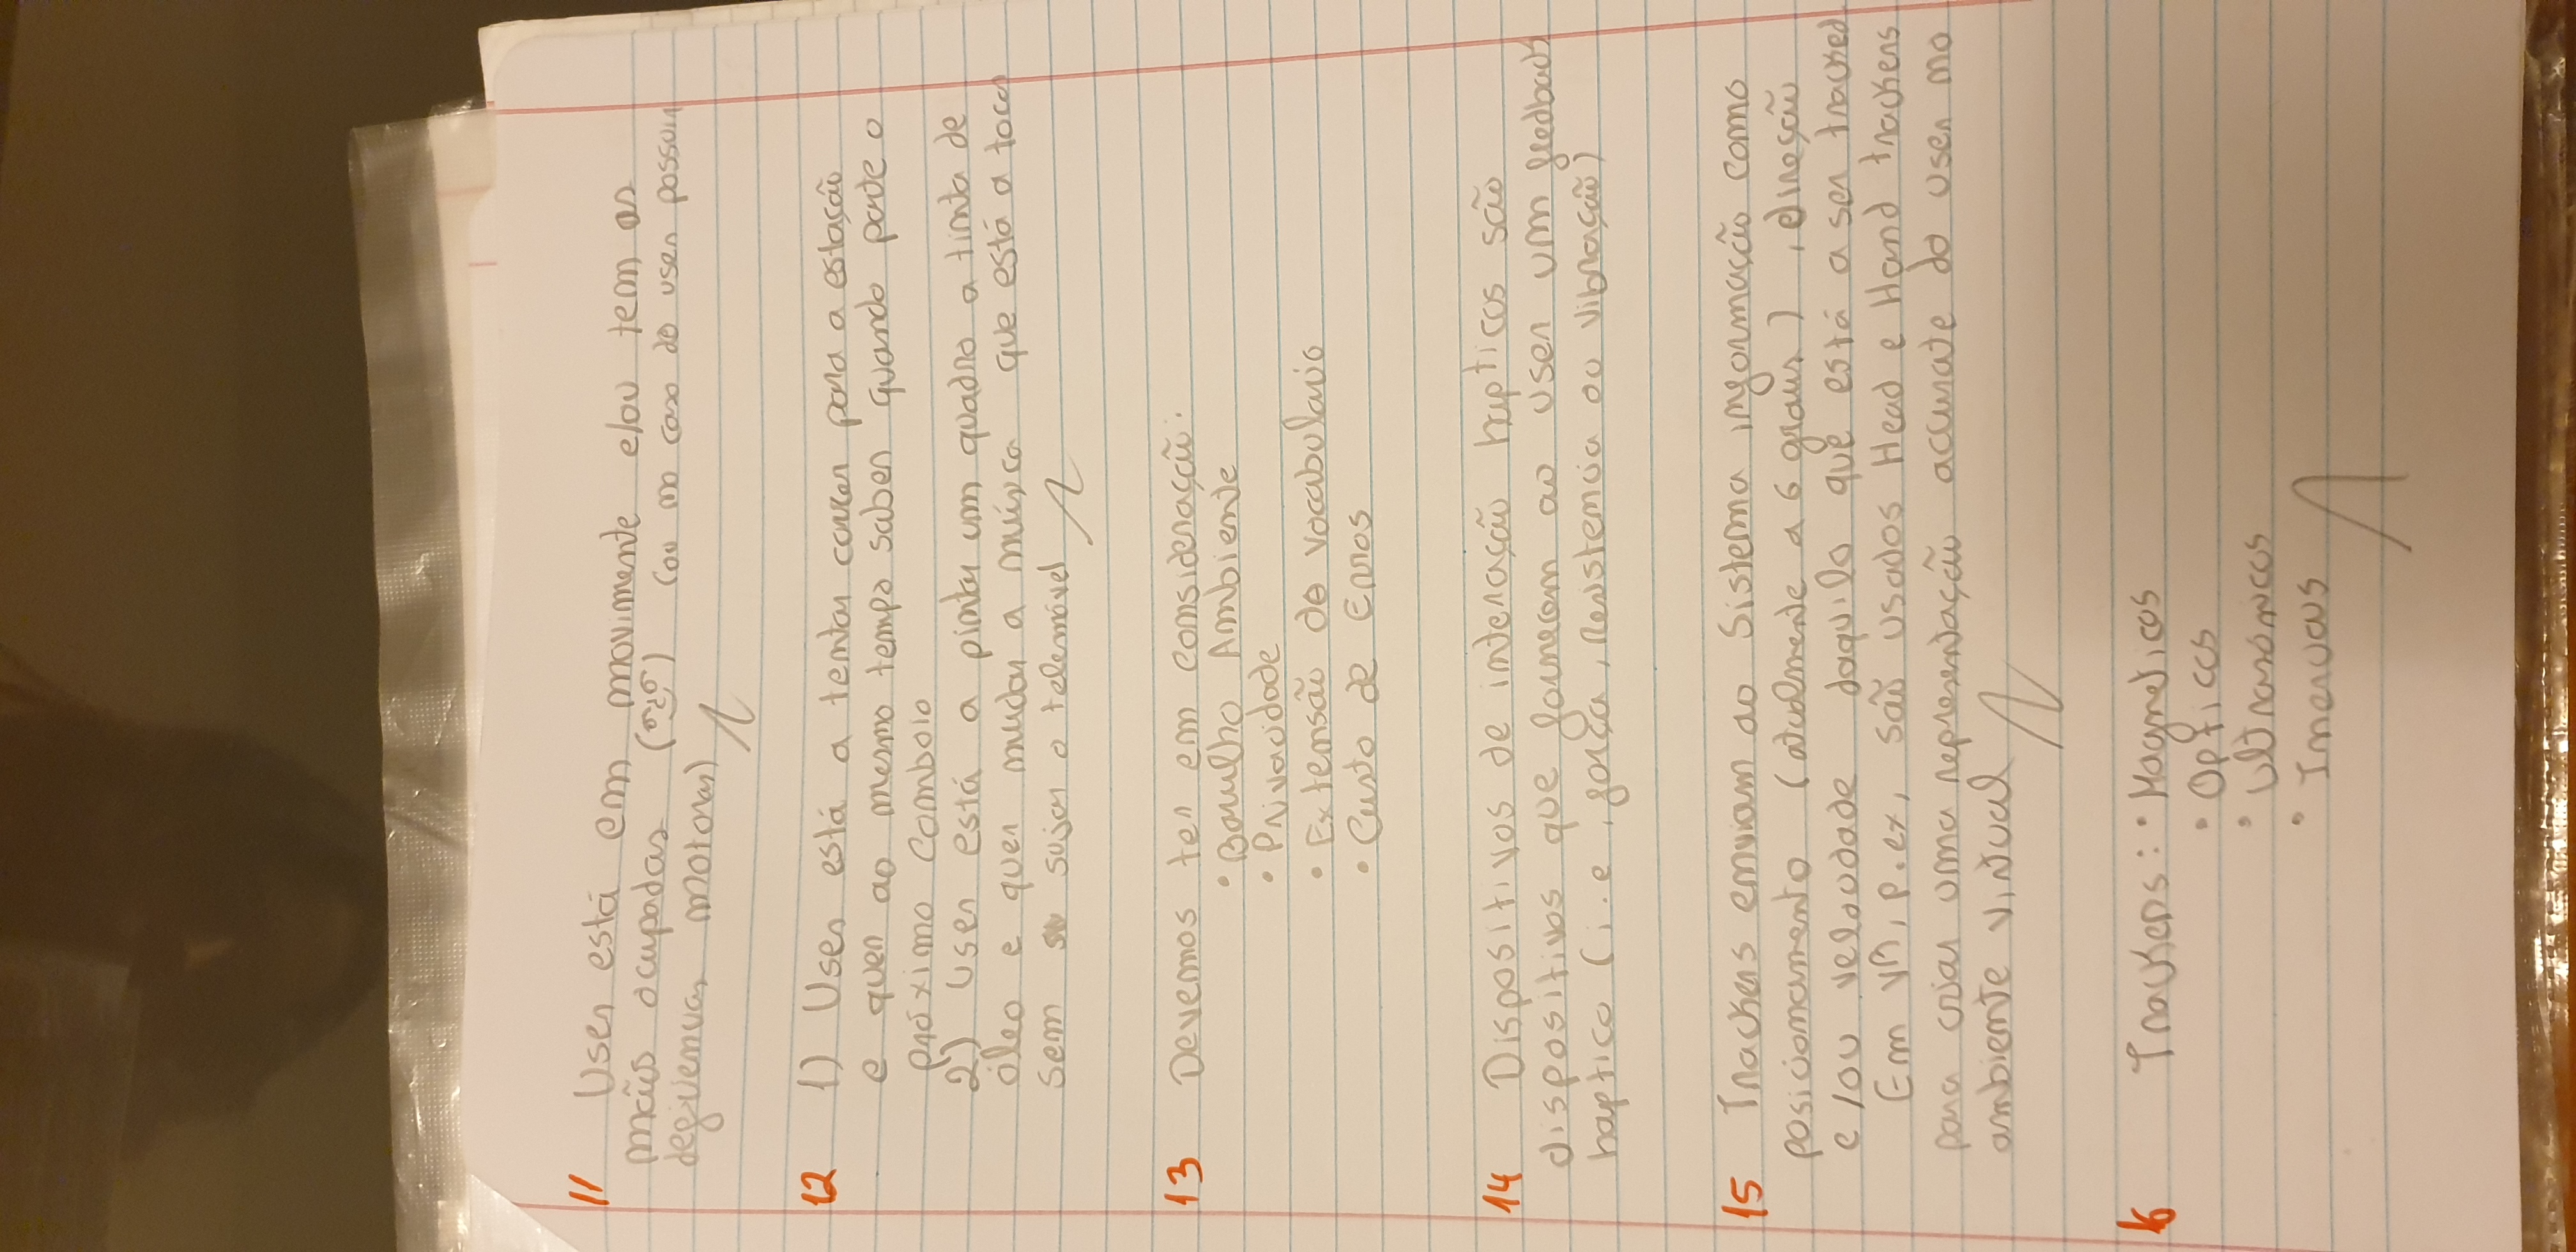 11 User está em movimente e/ou tem as
mãos ocupadas (ou no caso do user possuir
motoras)
12 1) User está a tentar correr para a estação
e quer ao mesmo tempo saber quando parte o
próximo comboio
2) User está a pintar um quadro a tinta de
óleo e quer mudar a música que está a tocar
sem sujar o telemóvel
13 Devemos ter em consideração:
• Barulho Ambiente
• Privacidade
• Extensão do vocabulario
• Custo de Erros
14 Dispositivos de interação hapticos são
dispositivos que fornecem ao user um feedback
haptico (i.e, força, resistencia ou vibração)
15 Trackers enviam ao Sistema informação como
posicionamento (atualmente a 6 graus), direção
e/ou velocidade daquilo que está a ser tracked.
Em VR, p.ex, são usados Head e Hand trackers
para criar uma representação accurate do user no
ambiente virtual
16 Trackers: • Magneticos
• Opticos
• Ultrasónicos
• Inerciais